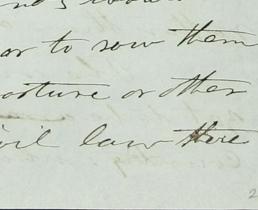 or to sow them
pasture or other
civil law there
2